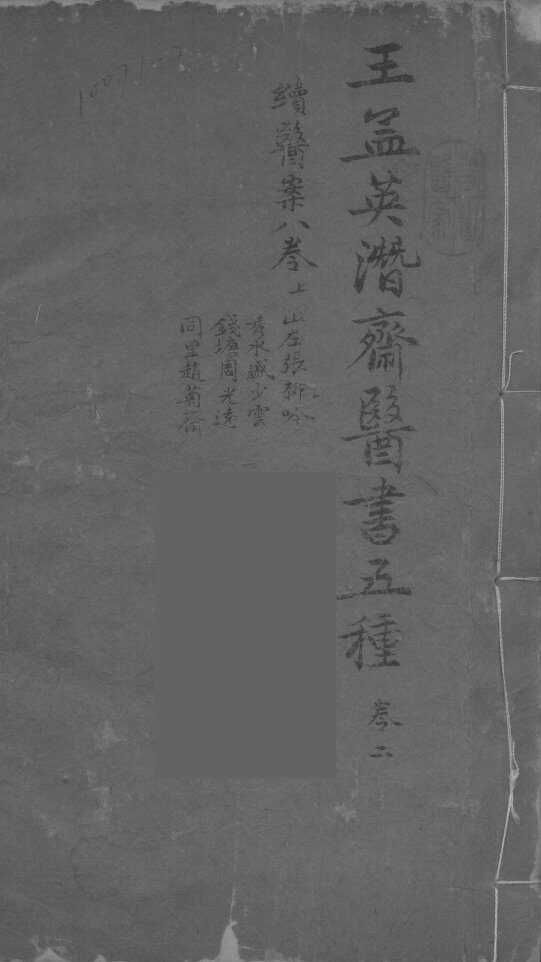 王孟英潛齋醫書五種 卷二
續醫案八卷上
山左張柳吟
秀水盛少雲
錢塘周光遠
同里趙菊齋